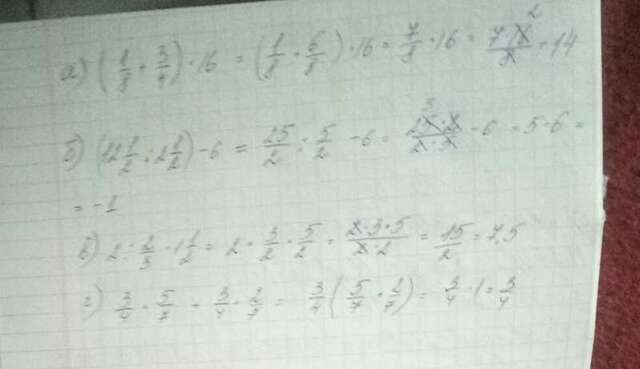 а) (1/8 + 3/4) · 16 = (1/8 + 6/8) · 16 = 7/8 · 16 = 7·16²/8 = 14
б) (12 1/2 : 2 1/2) - 6 = 25/2 : 5/2 - 6 = 25⁵·2/2·5 - 6 = 5 - 6 =
= -1
в) 2 : 2/3 · 1 1/2 = 2 · 3/2 · 5/2 = 2·3·5/2·2 = 15/2 = 7,5
г) 3/4 · 5/7 + 3/4 · 2/7 = 3/4 (5/7 + 2/7) = 3/4 · 1 = 3/4